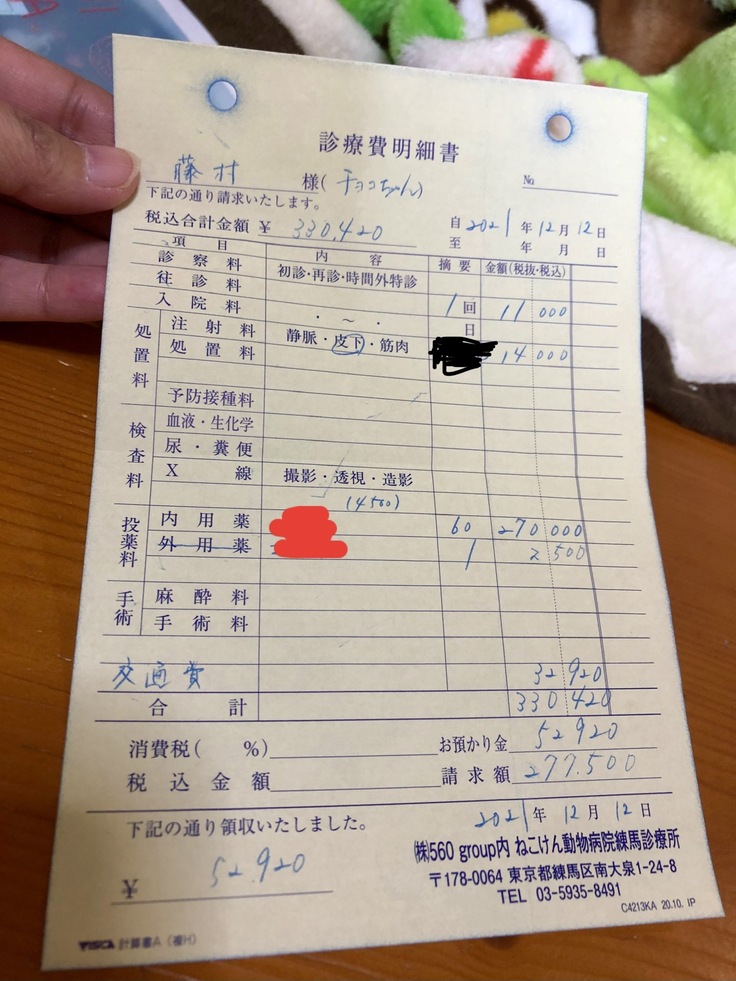 診療費明細書
藤村 様(チョコちゃん) No
下記の通り請求いたします。
税込合計金額 ¥ 330,420 自2021年12月12日
至 年 月 日
項目 内容 摘要 金額(税抜・税込)
診察料 初診・再診・時間外特診
往診料 1回 11 000
入院料 ・ ~ ・ 日
処置料 注射料 静脈・皮下・筋肉 14 000
処置料
予防接種料
検査料 血液・生化学
尿・糞便
X線 撮影・透視・造影
(4500)
投薬料 内用薬 60 270 000
外用薬 1 2 500
手術 麻酔料
手術料
交通費 32 920
合計 330 420
消費税( %) お預かり金 52 920
税込金額 請求額 277.500
2021年12月12日
下記の通り領収いたしました。
¥ 52.920
㈱560 group内 ねこけん動物病院練馬診療所
〒178-0064 東京都練馬区南大泉1-24-8
TEL 03-5935-8491
C4213KA 20.10. IP
VISCA 計算書A(複H)